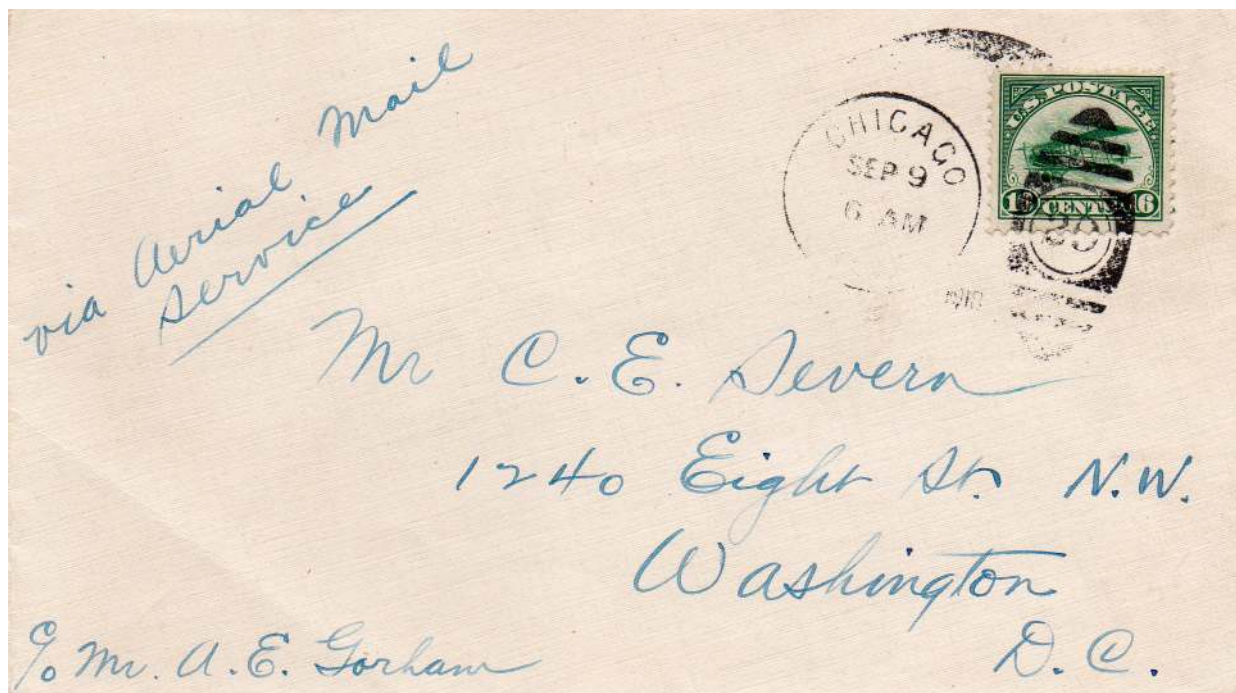 via Aerial Mail
service
CHICAGO
SEP 9
6 AM
U.S. POSTAGE
16 CENTS 16
Mr C. E. Severn
1240 Eight St. N.W.
Washington
D.C.
c/o Mr. A. E. Gorham